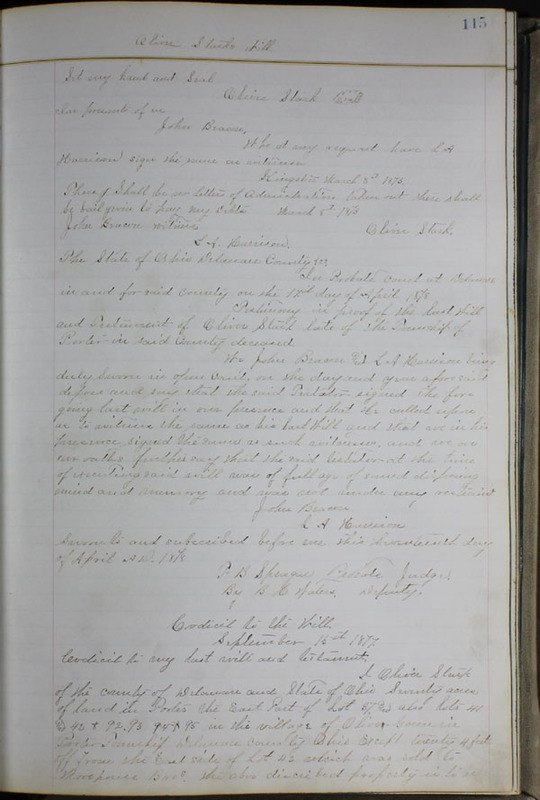 115
Oliver Starks Will.
Set my hand and Seal
Oliver Stark Seal
In presents of us
John Beacom,
Who at my request have L A
Harrison sign the same as witness
Kingston March 8th 1875
There Shall be no letters of Administration taken out there shall
be bail given to pay my debts March 8th 1875
John Beacom witness Oliver Stark.
L. A. Harrison.
The State of Ohio Delaware County SS
In Probate court at Delaware
in and for said County on the 17th day of April 1878
Testimony in proof of the last Will
and Testament of Oliver Stark late of the Township of
Porter in said County deceased
We John Beacom & L A Harrison being
duly sworn in open Court, on the day and year aforesaid
depose and say that the said Testator signed the fore
going last will in our presence and that he called upon
us to witness the same as his last Will and that we in his
presence signed the same as such witnesses, and we on
our oaths further say that the said testator at the time
of executing said will was of full age of sound disposing
mind and memory and was not under any restraint
John Beacom
L A Harrison
Sworn to and subscribed before me this Seventeenth day
of April A.D. 1878
F B Sprague Probate Judge,
By B C Waters, Deputy.
Codicil to the Will,
September 15th 1877
Codicil to my last will and testament,
I Oliver Stark
of the county of Delaware and State of Ohio Seventy acres
of land in Porter the East Part of Lot also lots 41
& 42 & 92, 93 94 & 95 in the village of Olive Green in
Porter Township Delaware County Ohio Except twenty 4 feet
off from the East side of Lot 42 which was sold to
the abov discribed property is to be